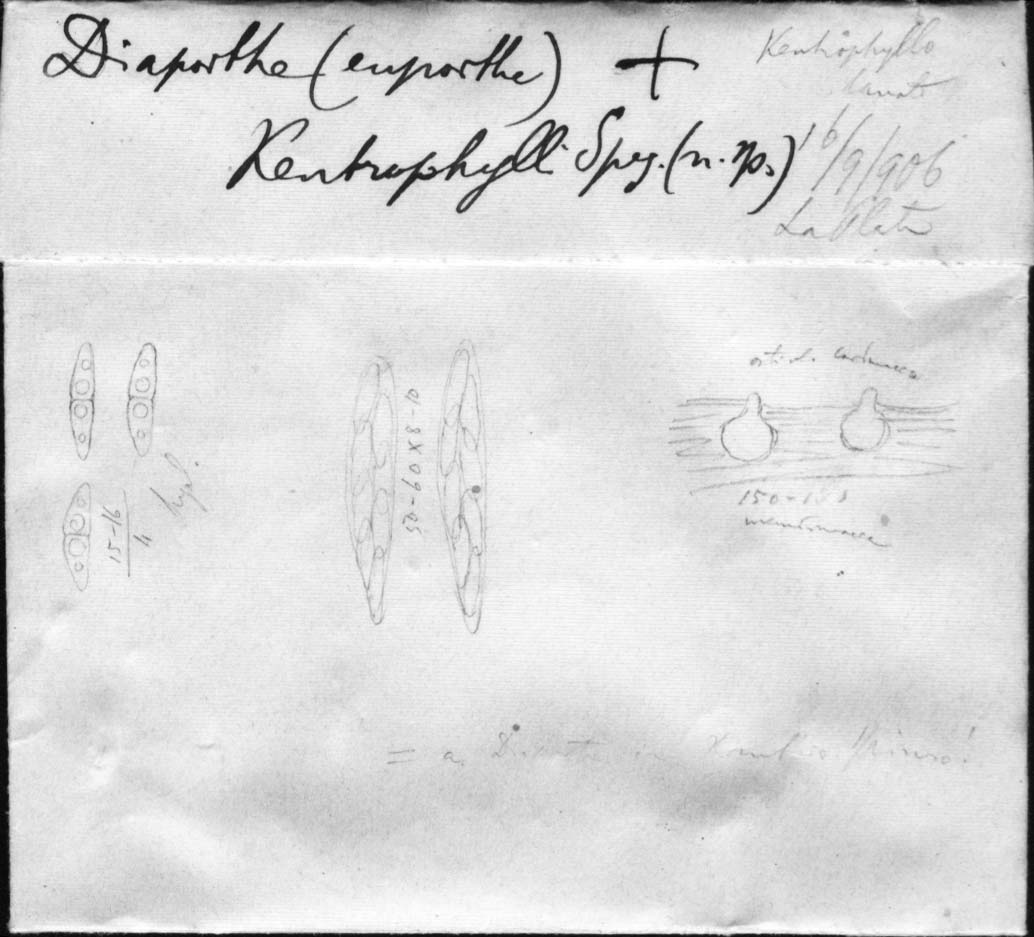 Diaporthe (euporthe) +
Kentrophylli Speg. (n. sp.)
Kentrophyllo
lanato
16/9/906
La Plata
ostiolo carbonaceo
15-16
4
hyal.
50-60 X 8-10
150-180
membranacea
= a Diaporthe in Xanthio